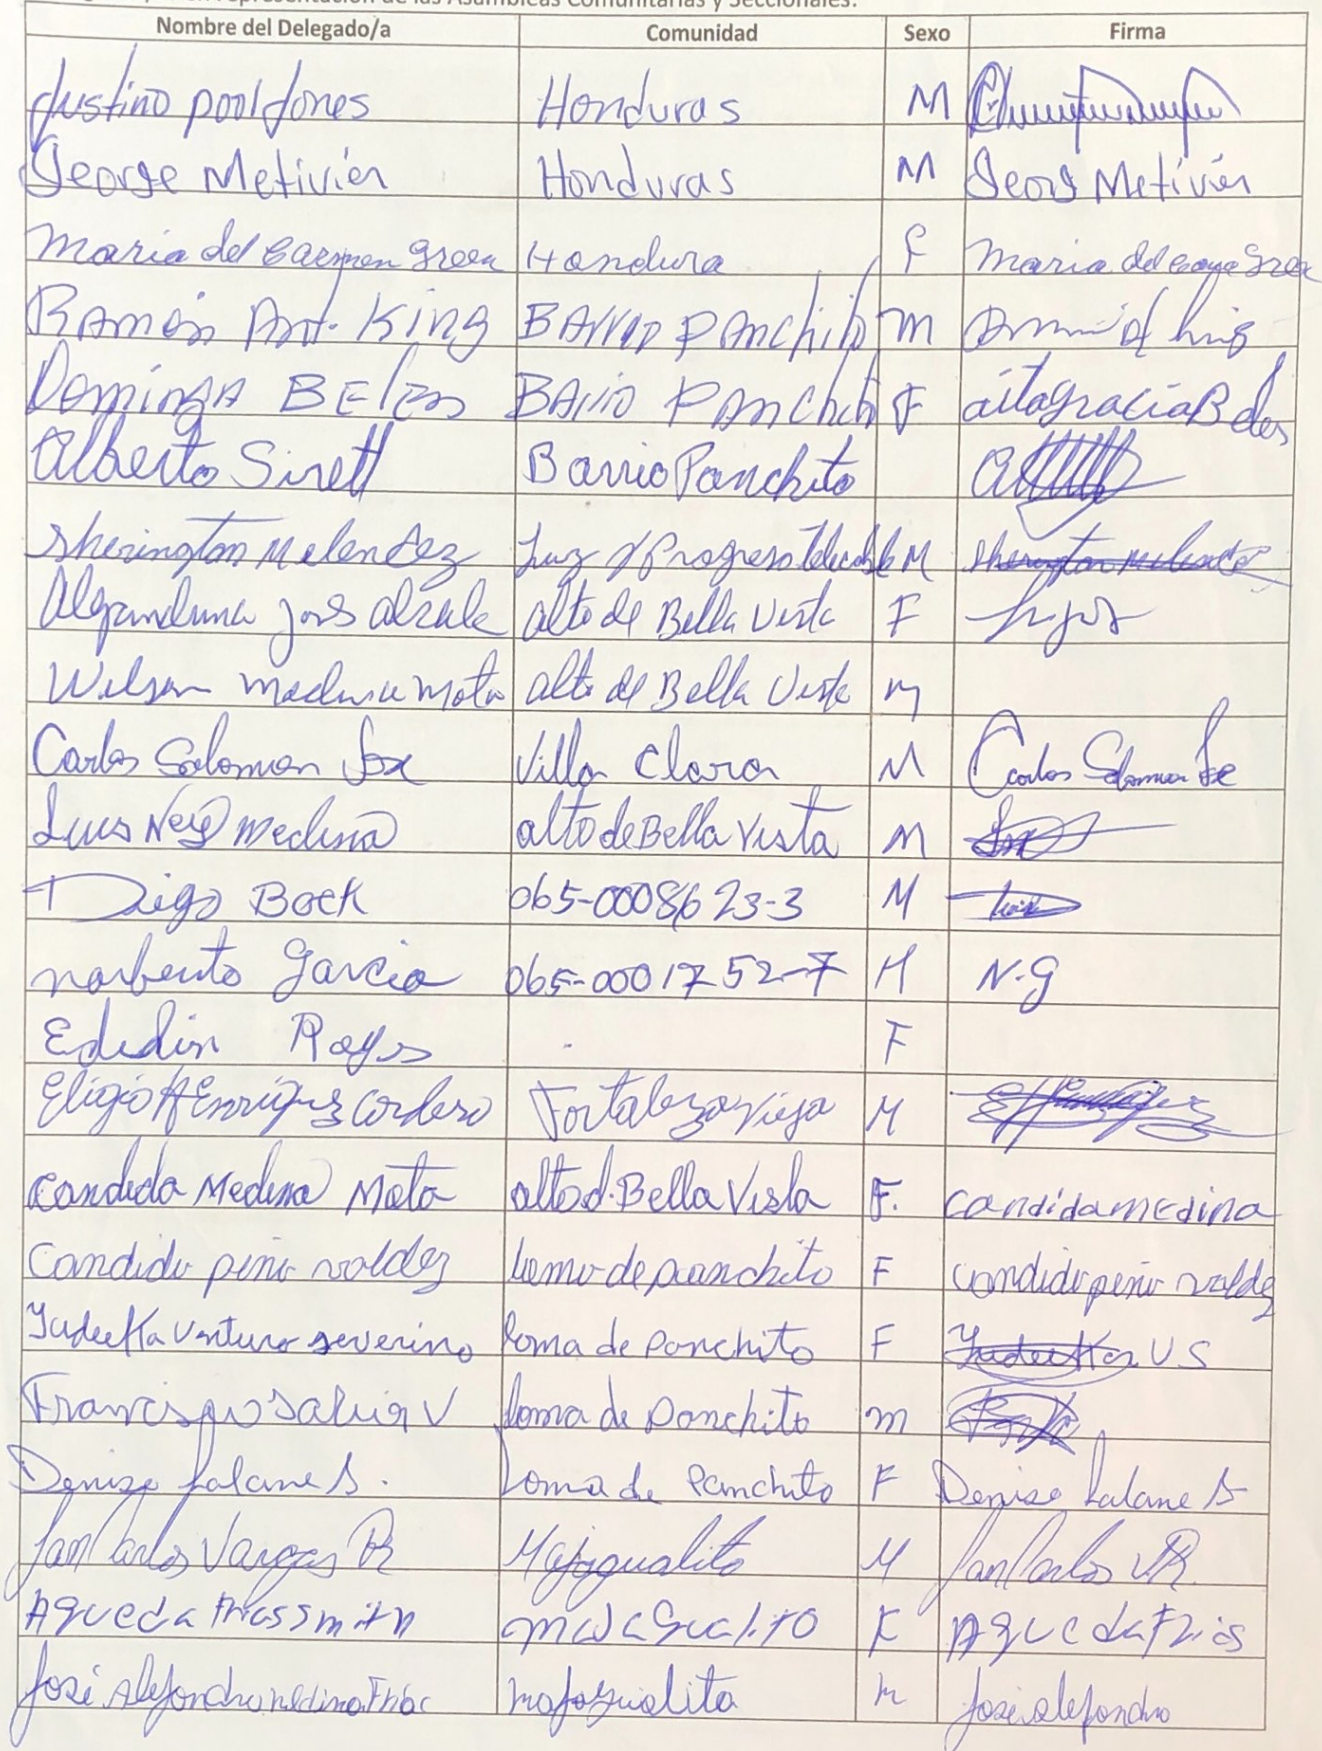 Nombre del Delegado/a Comunidad Sexo Firma
Justino pool Jones Honduras M
George Metivier Honduras M Georg Metivier
Maria del Carmen Green Hondura F Maria del
Ramón Ant. King Barrio Panchito m
Dominga Beles Barrio Panchito F altagracia Beles
Alberto Sirett Barrio Panchito
Sherington Melendez Luz y Progreso M Sherington Melendez
alto de Bella Vista F
Wilson medina mota alto de Bella Vista m
Carlos Salomon Jose Villa Clara M Carlos Salomon Jose
Luis medina alto de Bella Vista M
Digo Bock 065-0008623-3 M
norberto Garcia 065-0001752-7 M N.G
Ededin Reyes F
Eligio H Enriquez Cordero Fortaleza vieja M
Candida Medina Mota alto d. Bella Vista F. candida medina
Candida peña valdez loma de panchito F candida peña valdez
Yudelka Ventura severino loma de panchito F Yudelka V S
loma de panchito m
Denise Lalane S. Loma de Panchito F Denise Lalane S
Jan Carlos Vargas R Majagualito M Jan Carlos V.R.
Agueda Frias smith majagualito F Agueda Frias
José Alejandro medina Frias majagualito m José alejandro